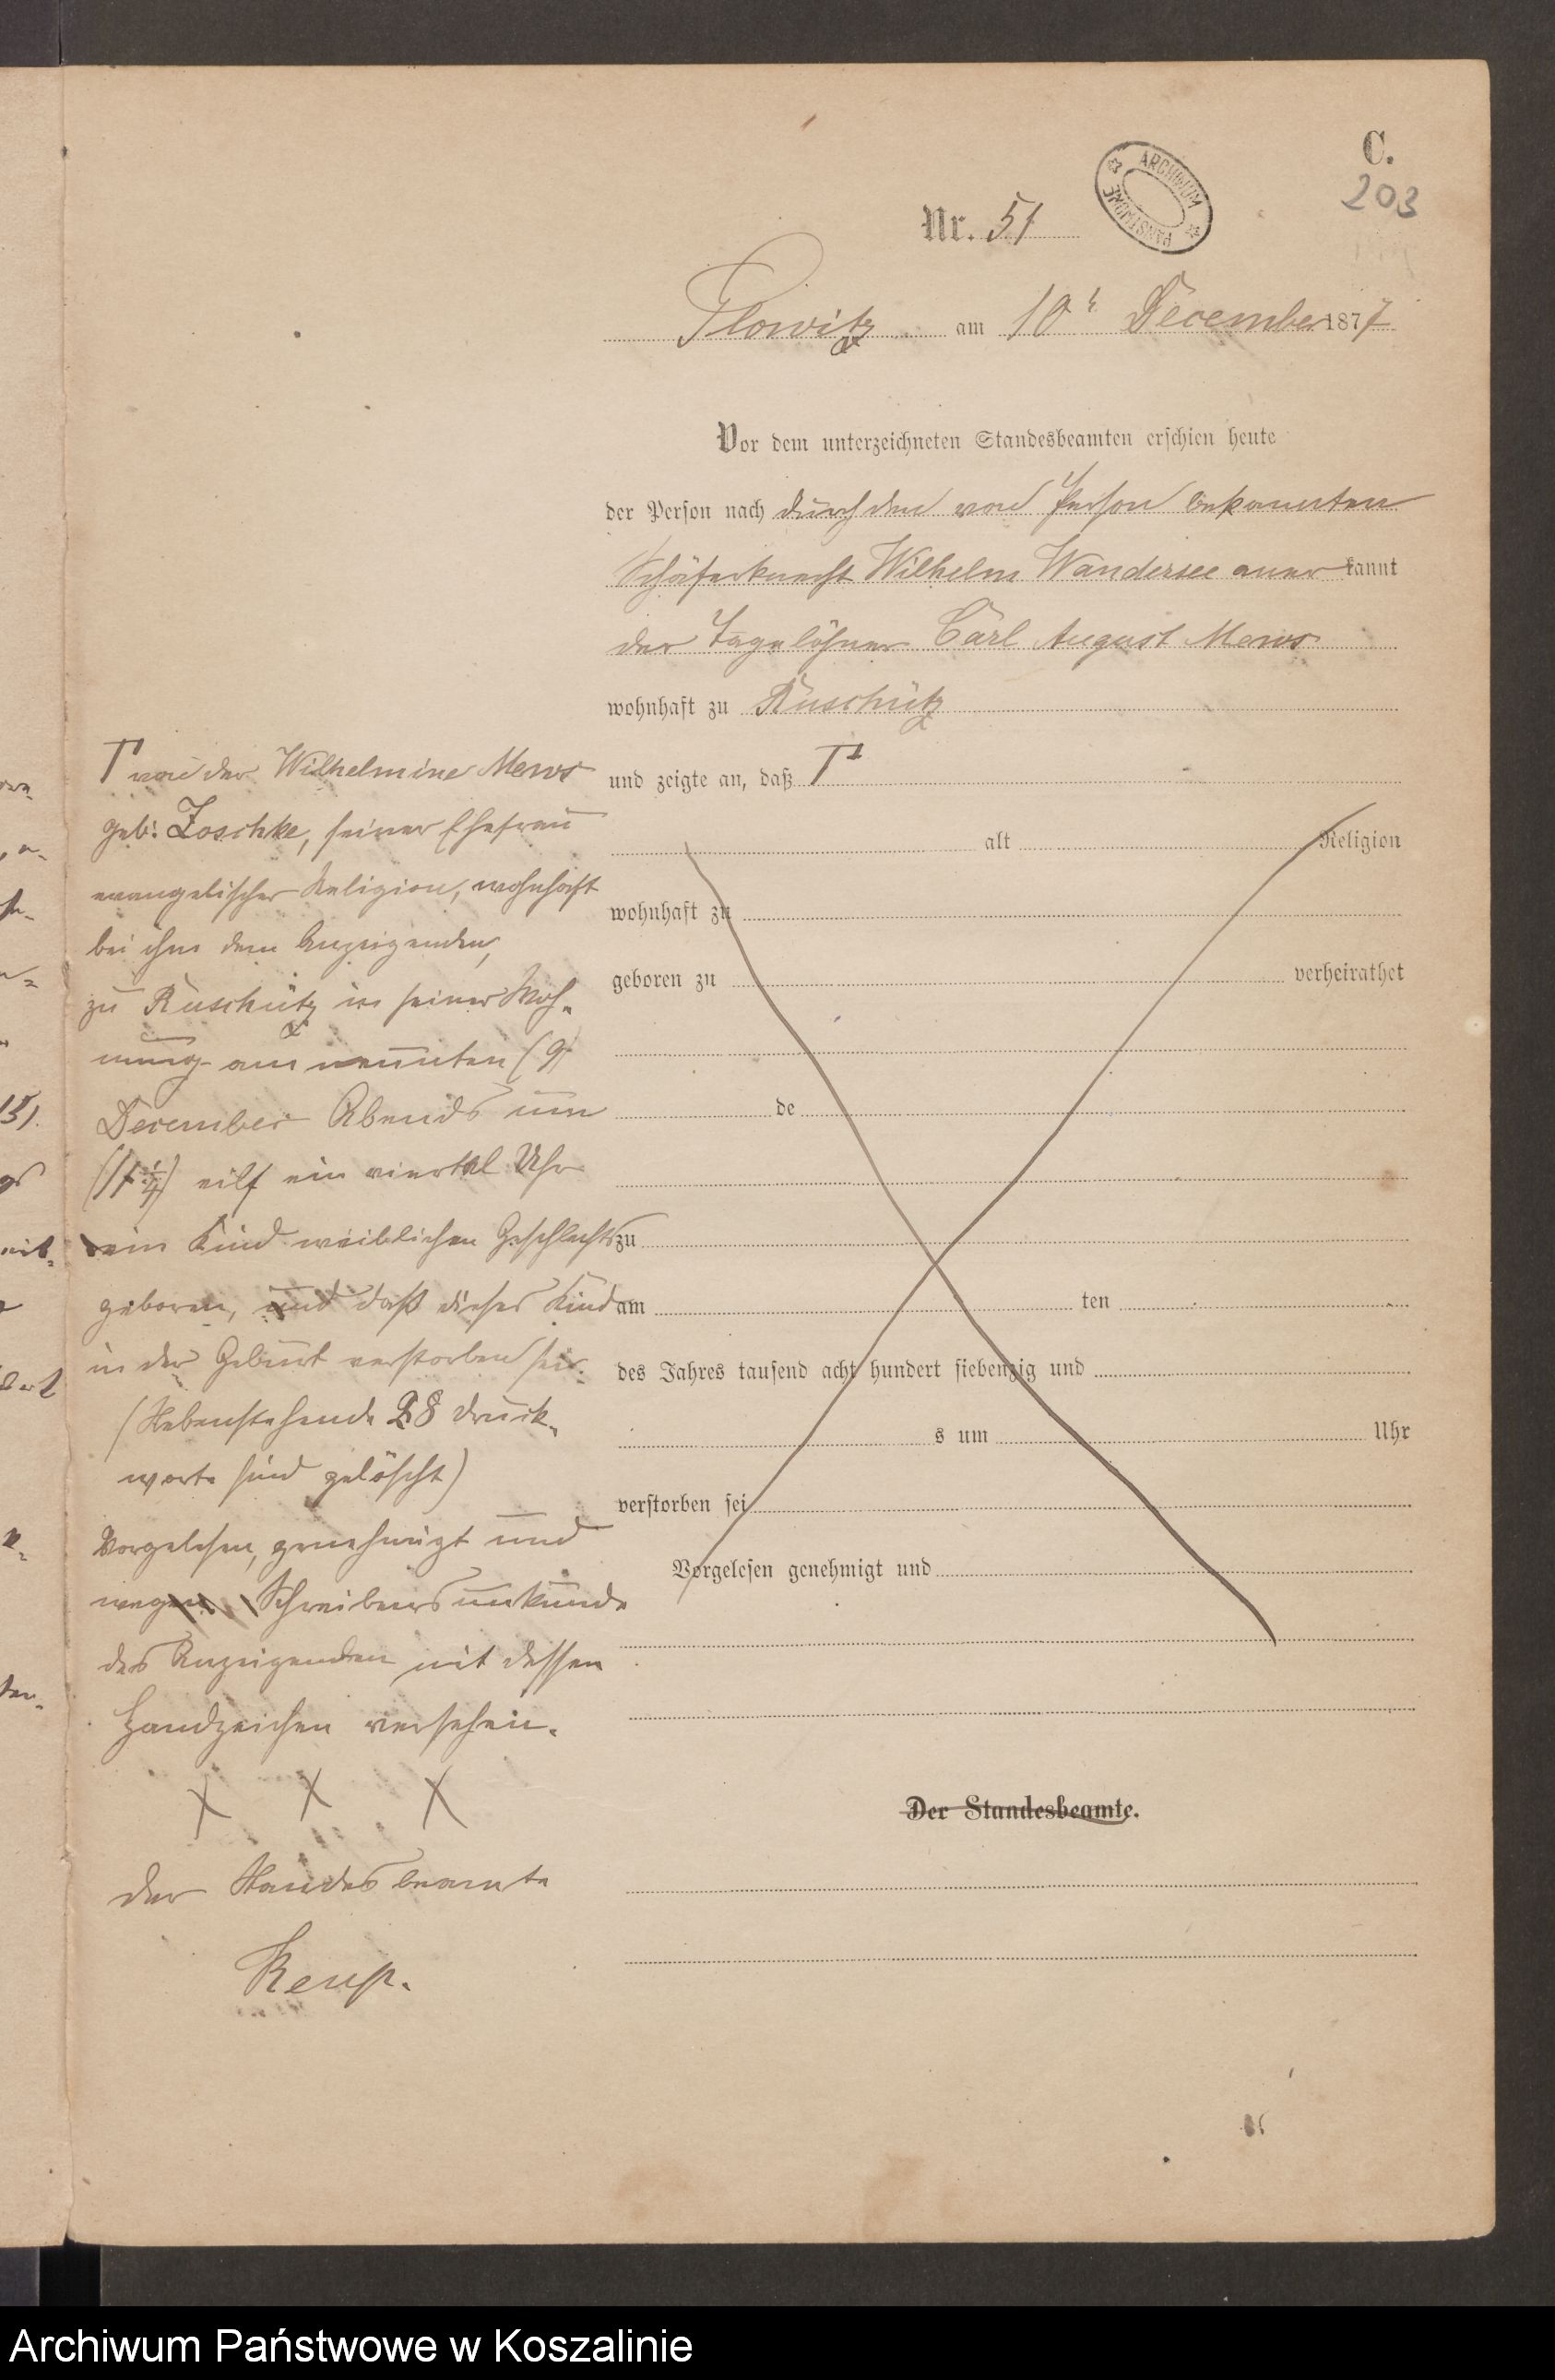 C.
203
ARCHIWUM PAŃSTWOWE
Nr. 51
Plowitz am 10t December 1877
Vor dem unterzeichneten Standesbeamten erschien heute
der Person nach durch den von Person bekannten
Schäferknecht Wilhelm Wandersee aner kannt
der Tagelöhner Carl August Mews
wohnhaft zu Ruschütz
und zeigte an, daß Γ
alt Religion
wohnhaft zu
geboren zu verheirathet
de
zu
am ten
des Jahres tausend acht hundert siebenzig und
s um Uhr
verstorben sei
Vorgelesen genehmigt und
Der Standesbeamte.
Γ von der Wilhelmine Mews
geb: Zoschke, seiner Ehefrau
evangelischer Religion, wohnhaft
bei ihm dem Anzeigenden,
zu Ruschütz in seiner Woh-
nung am neunten (9)
December Abends um
(11 1/4) eilf ein viertel Uhr
ein Kind weiblichen Geschlechts
geboren, und daß dieses Kind
in der Geburt verstorben sei.
(Nebenstehende 28 Druck-
worte sind gelöscht)
Vorgelesen, genehmigt und
wegen Schreibensunkunde
des Anzeigenden mit dessen
Handzeichen versehen.
X X X
Der Standesbeamte
Archiwum Państwowe w Koszalinie